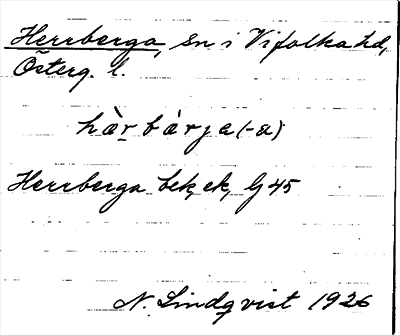 Herrberga, sn i Vifolka hd,
Österg. l.
hàr bàrja (-a)
Herrberga bek, ek, G 45
N. Lindqvist 1926